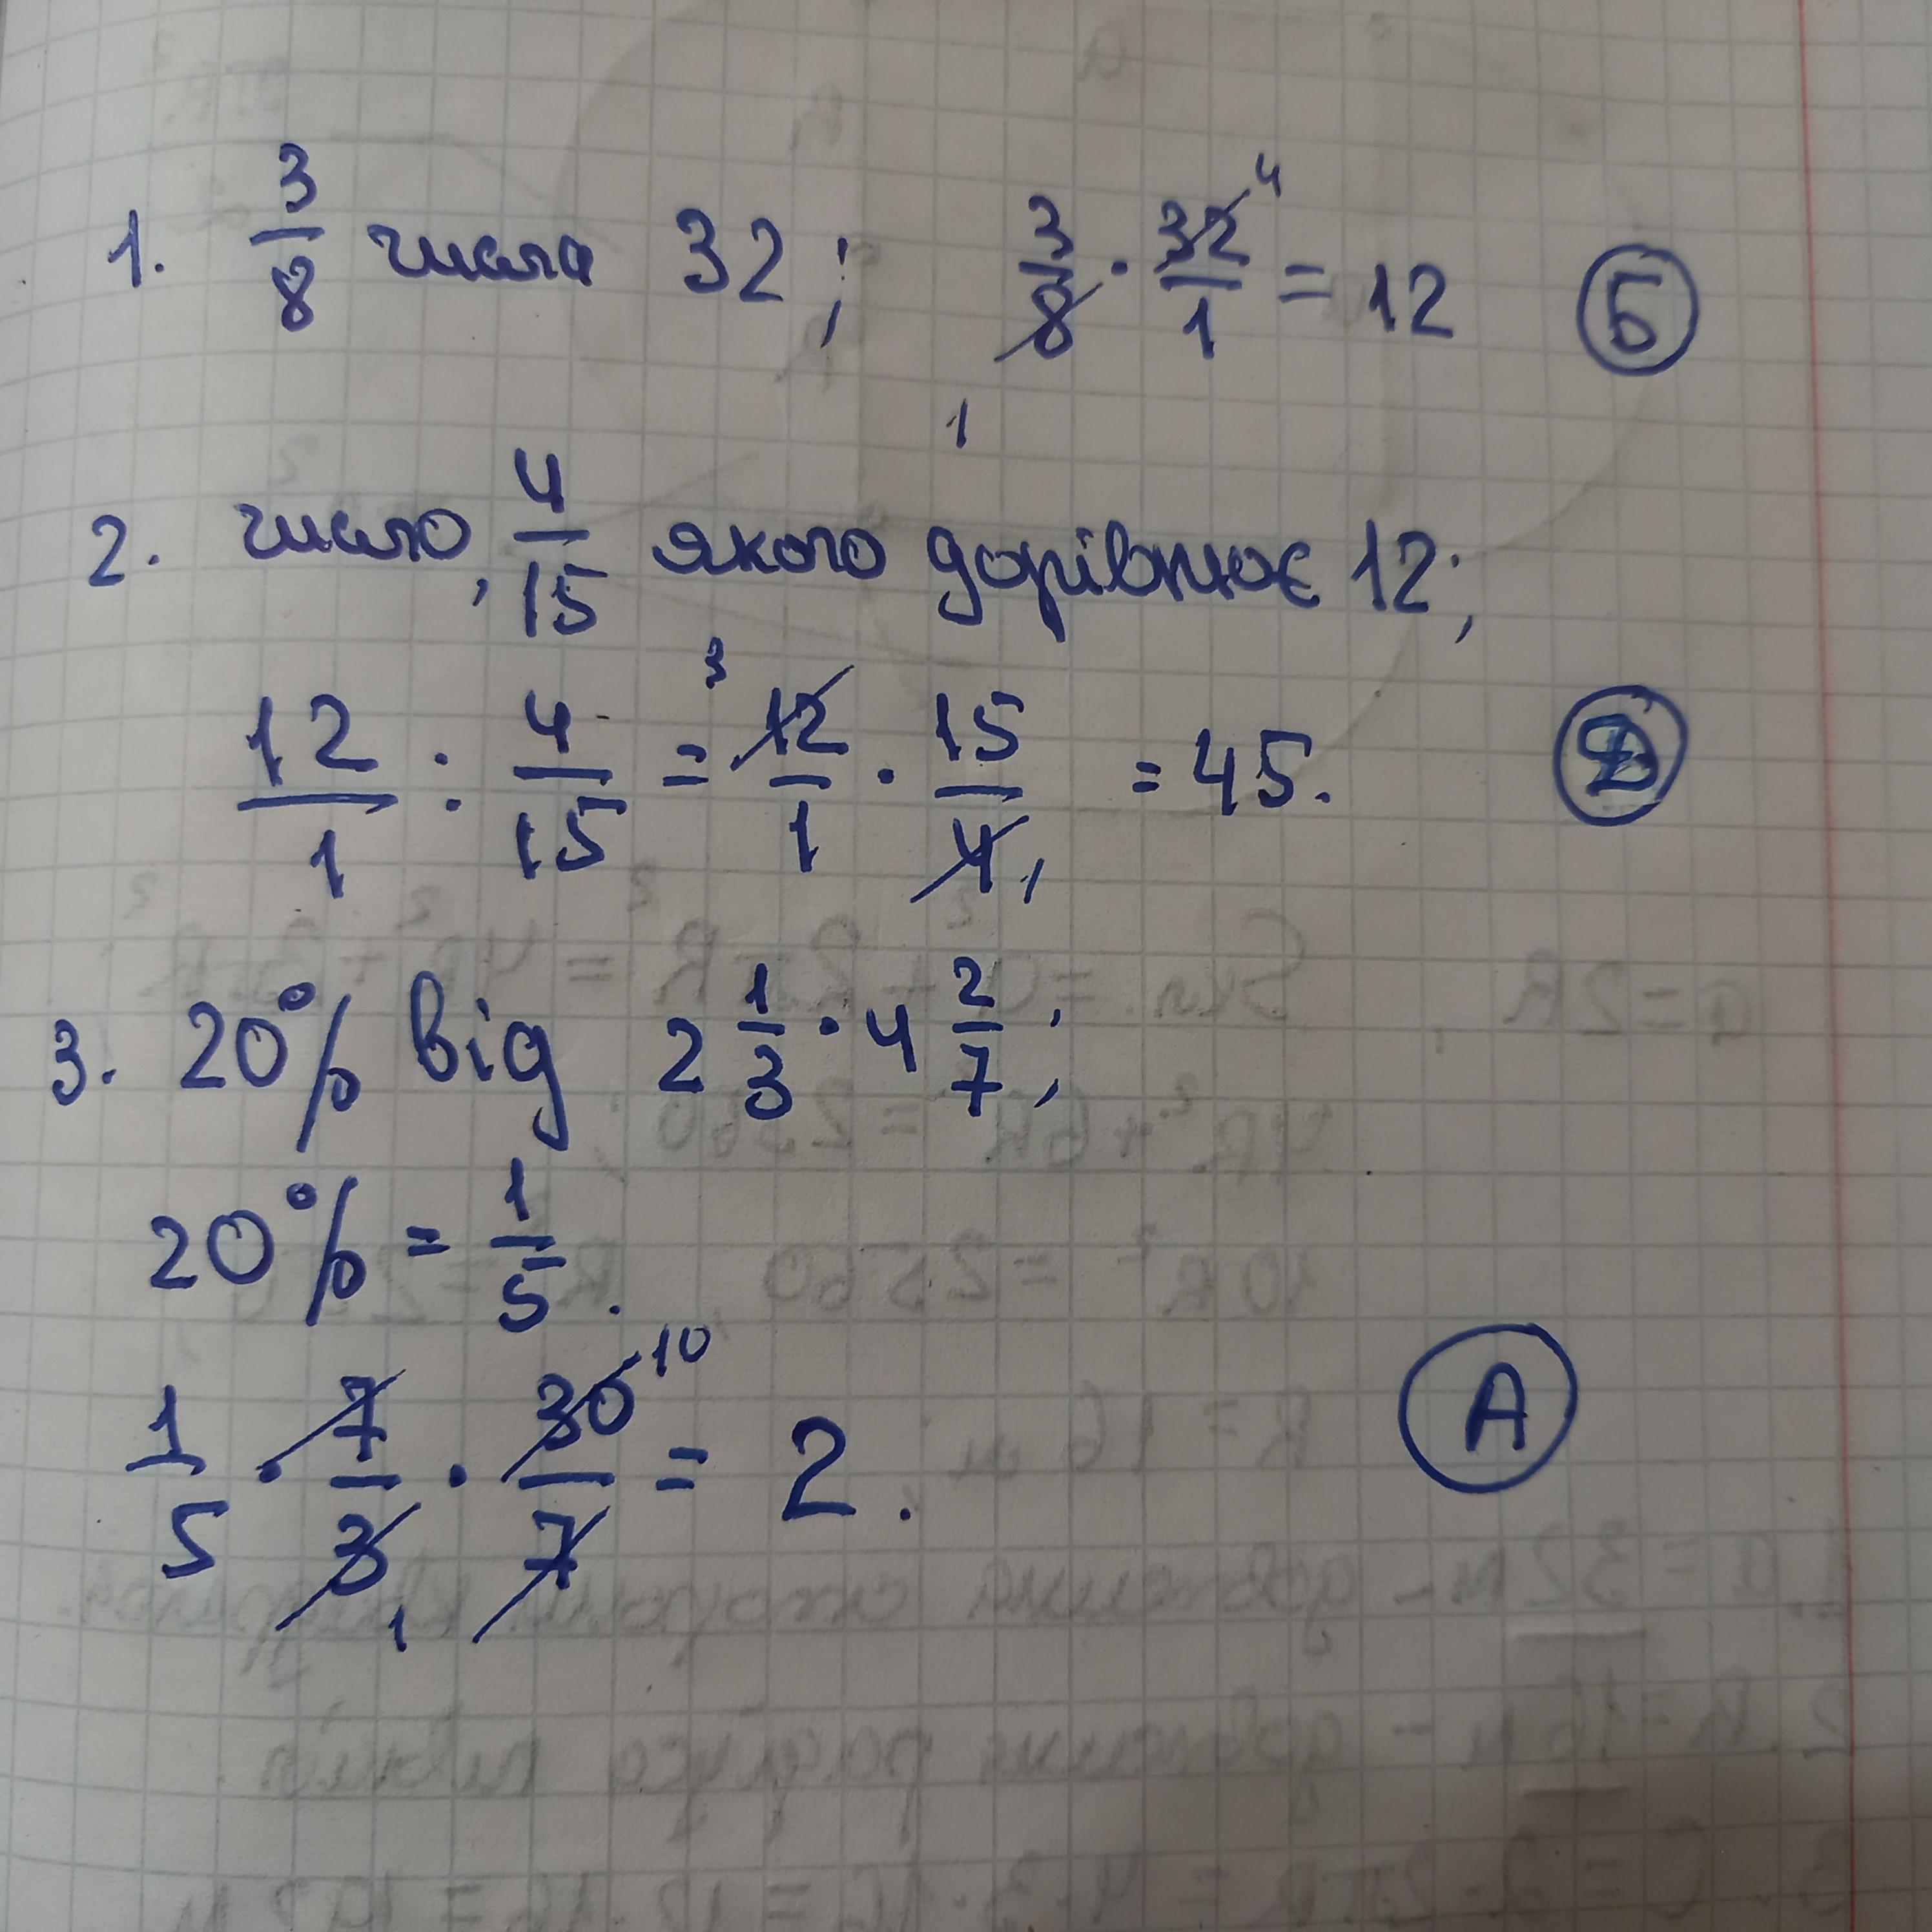 1. 3/8 числа 32; 3/8 · 32/1 = 12 Б
4
1
2. число, 4/15 якого дорівнює 12;
12/1 : 4/15 = 12/1 · 15/4 = 45. Д
3
1
3. 20% від 2 1/3 · 4 2/7;
20% = 1/5.
1/5 · 7/3 · 30/7 = 2. А
10
1